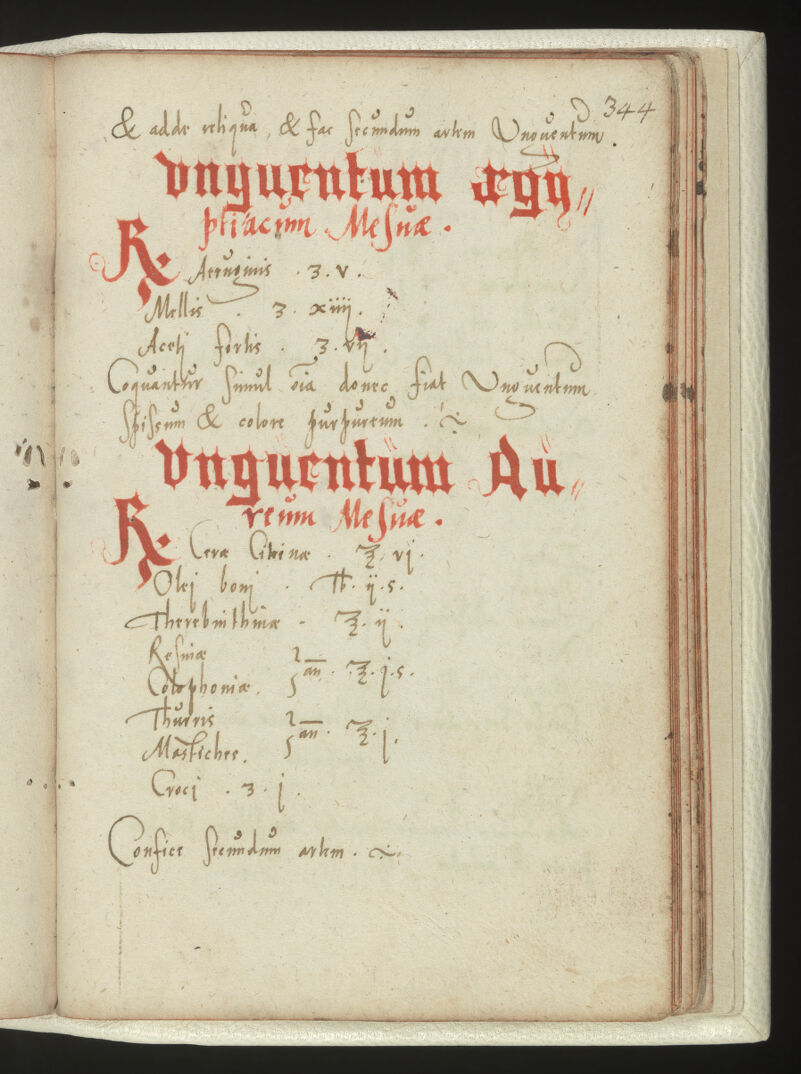 344
& adde reliqua, & fac secundum artem Unguentum.
Vnguentum ægy〃
ptiacum Mesuæ.
℞. Aeruginis . ʒ. v.
Mellis . ʒ. xiiij.
Acetj fortis . ʒ. vij.
Coquantur simul oĩa donec fiat Unguentum
spissum & colore purpureum . ~
Vnguentum Au〃
reum Mesuæ.
℞. Ceræ Citrinæ . ℥. vj.
Olej bonj . ℔. ij. s.
Therebinthinæ . ℥. ij.
Resinæ
Colophoniæ. } an̅. ℥. j. s.
Thurris
Mastiches. } an̅. ℥. j.
Crocj . ʒ. j.
Confice secundum artem. ~